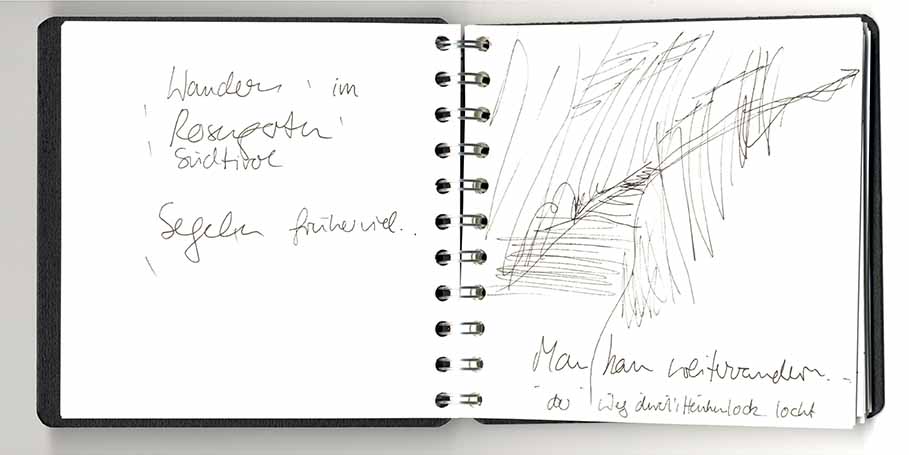 Wandern im
Rosengarten
Südtirol
Segeln früher viel..
Man kann weiterwandern...
der Weg durch's locht